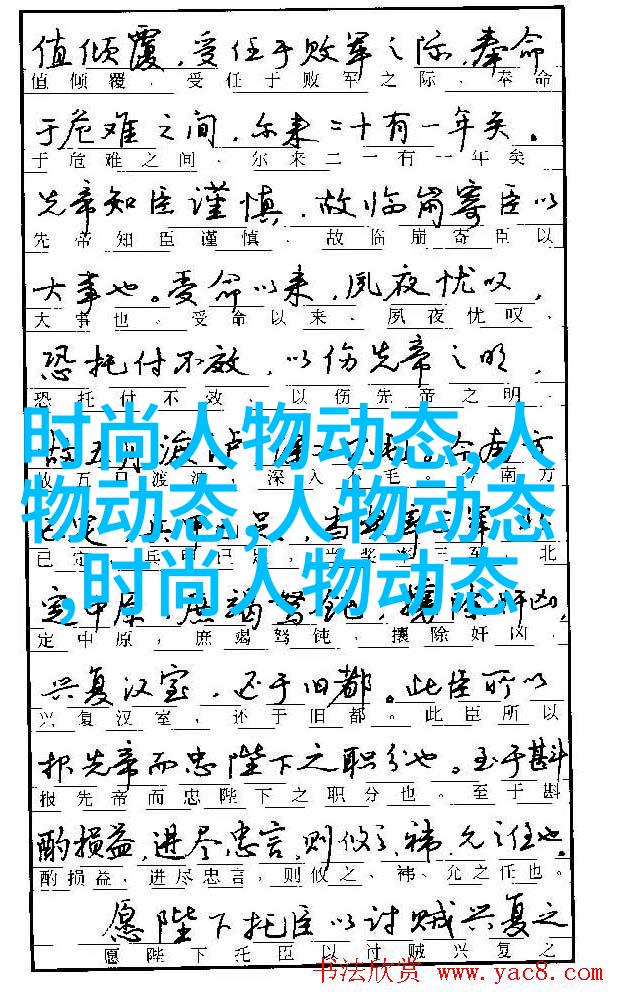 值倾覆，受任于败军之际，奉命
值倾覆，受任于败军之际，奉命
于危难之间，尔来二十有一年矣。
于危难之间，尔来二一有一年矣
先帝知臣谨慎，故临崩寄臣以
先帝知臣谨慎，故临崩寄臣以
大事也。受命以来，夙夜忧叹，
大事也。受命以来，夙夜忧叹，
恐托付不效，以伤先帝之明，
恐托付不效，以伤先帝之明，
时尚人物动态,人
物动态,人物动态
,时尚人物动态
故五月渡泸 今南方
深入 毛。南方
已定
已定，兵甲已足，北
定中原，庶竭驽钝，攘除奸凶，
定中原，庶竭驽钝，攘除奸凶，
兴复汉室，还于旧都。此臣所以
兴复汉室，还于旧都。此臣所以
报先帝而忠陛下之职分也。至于斟
报先帝而忠陛下之职分也。至于斟
酌损益，进尽忠言，则攸之、祎、允之任也。
酌损益，进尽忠言，则攸之、祎、允之任也。
愿陛下托臣以讨贼兴复之
愿陛下托臣以讨贼兴复之
书法欣赏 www.yac8.com